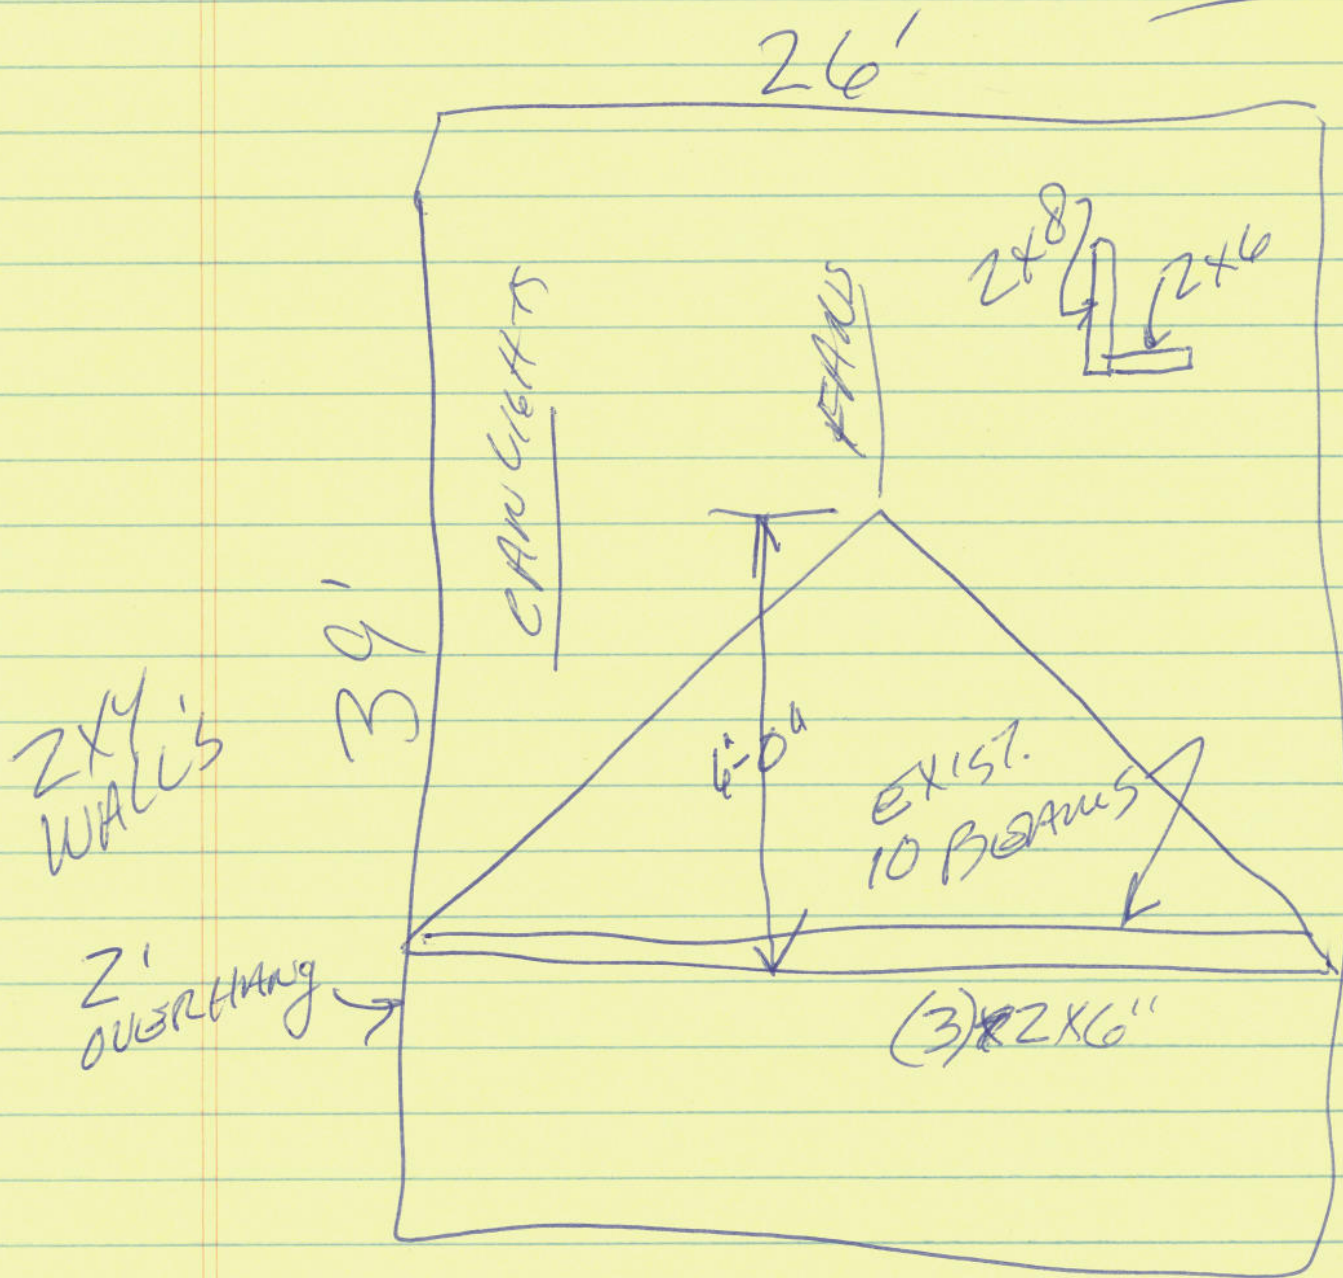 26'
2x8
2x6
CAN LIGHTS
FANS
39'
2X4
WALL'S
6'-0"
EXIST.
10 BEAMS
2'
OVERHANG
(3) 2X6"